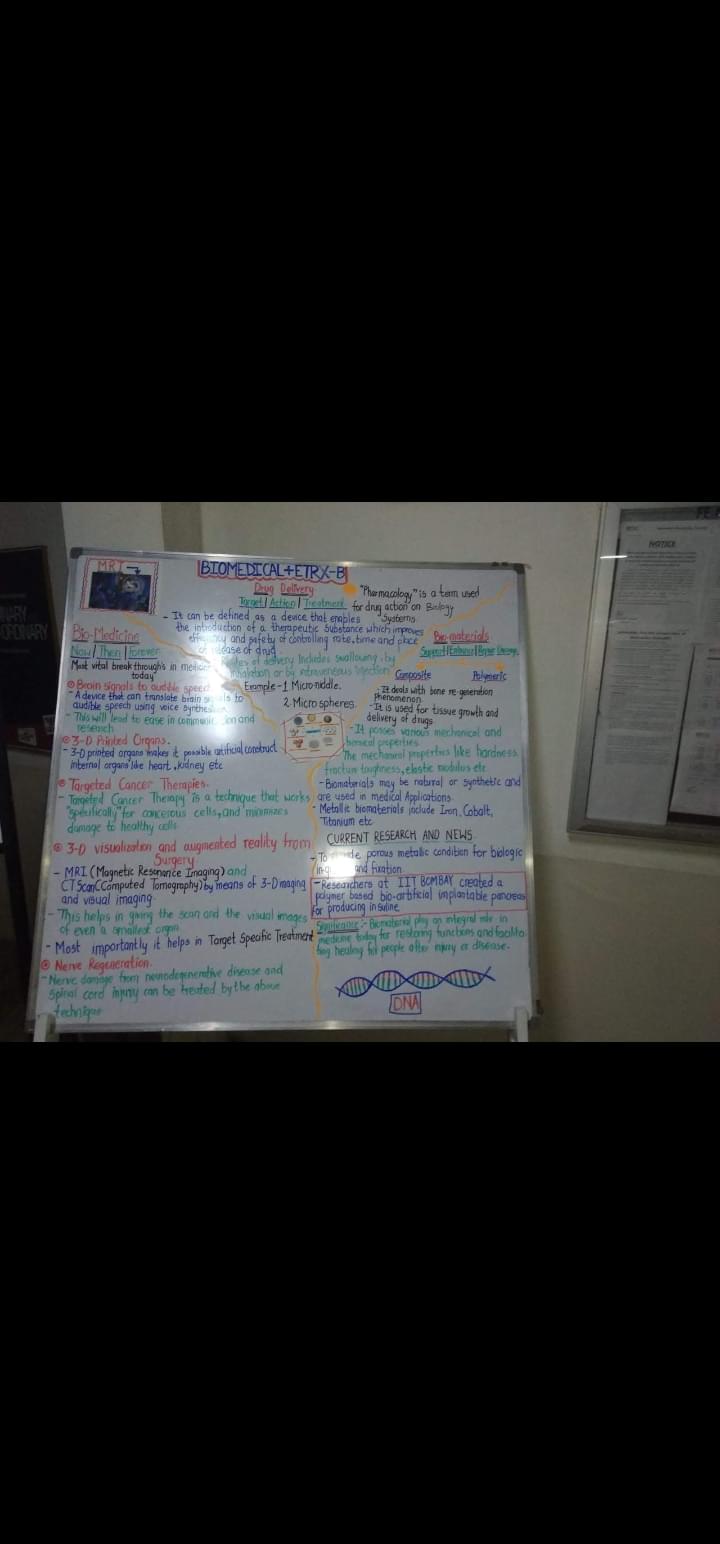 MRI
BIOMEDICAL+ETRX-B
Drug Delivery
Target / Action / Treatment
- It can be defined as a device that enables
the introduction of a therapeutic substance which improves
efficiency and safety of controlling rate, time and place
of release of drug
Routes of delivery Includes swallowing, by
inhalation or by intraveneous injection
Example - 1 Micro-niddle.
2. Micro spheres.
"Pharmacology" is a term used
for drug action on Biology
Systems.
Bio-Medicine
Now / Then / Forever
Most vital break through's in medicine
today
Brain signals to audible speech
- A device that can translate brain signals to
audible speech using voice
- This will lead to ease in communication and
research
3-D Printed Organs.
- 3-D printed organs makes it possible artificial construct
internal organs like heart, kidney etc
Targeted Cancer Therapies.
- Targeted Cancer Therapy is a technique that works
"specifically" for cancerous cells, and minimizes
damage to healthy cells
3-D visualization and augmented reality from
Surgery
- MRI (Magnetic Resonance Imaging) and
CT Scan (Computed Tomography) by means of 3-D imaging
and visual imaging.
- This helps in giving the scan and the visual images
of even a smallest organ
- Most importantly it helps in Target Specific Treatment
Nerve Regeneration.
- Nerve damage from neurodegenerative disease and
spinal cord injury can be treated by the above
technique
Bio-materials
Support / Enhance /
Composite Polymeric
- It deals with bone re-generation
phenomenon
- It is used for tissue growth and
delivery of drugs
- It posses various mechanical and
chemical properties
The mechanical properties like hardness,
fracture toughness, elastic mobilus etc
- Biomaterials may be natural or synthetic and
are used in medical Applications
- Metallic biomaterials include Iron, Cobalt,
Titanium etc
CURRENT RESEARCH AND NEWS
- To porous metallic condition for biologic
and fixation
- Researchers at IIT BOMBAY created a
polymer based bio-artificial implantable pancreas
for producing insuline
Significance :- Biomaterial play an integral role in
medicine today for restoring functions and facilita
ting healing for people after injury or disease.
DNA
NOTICE